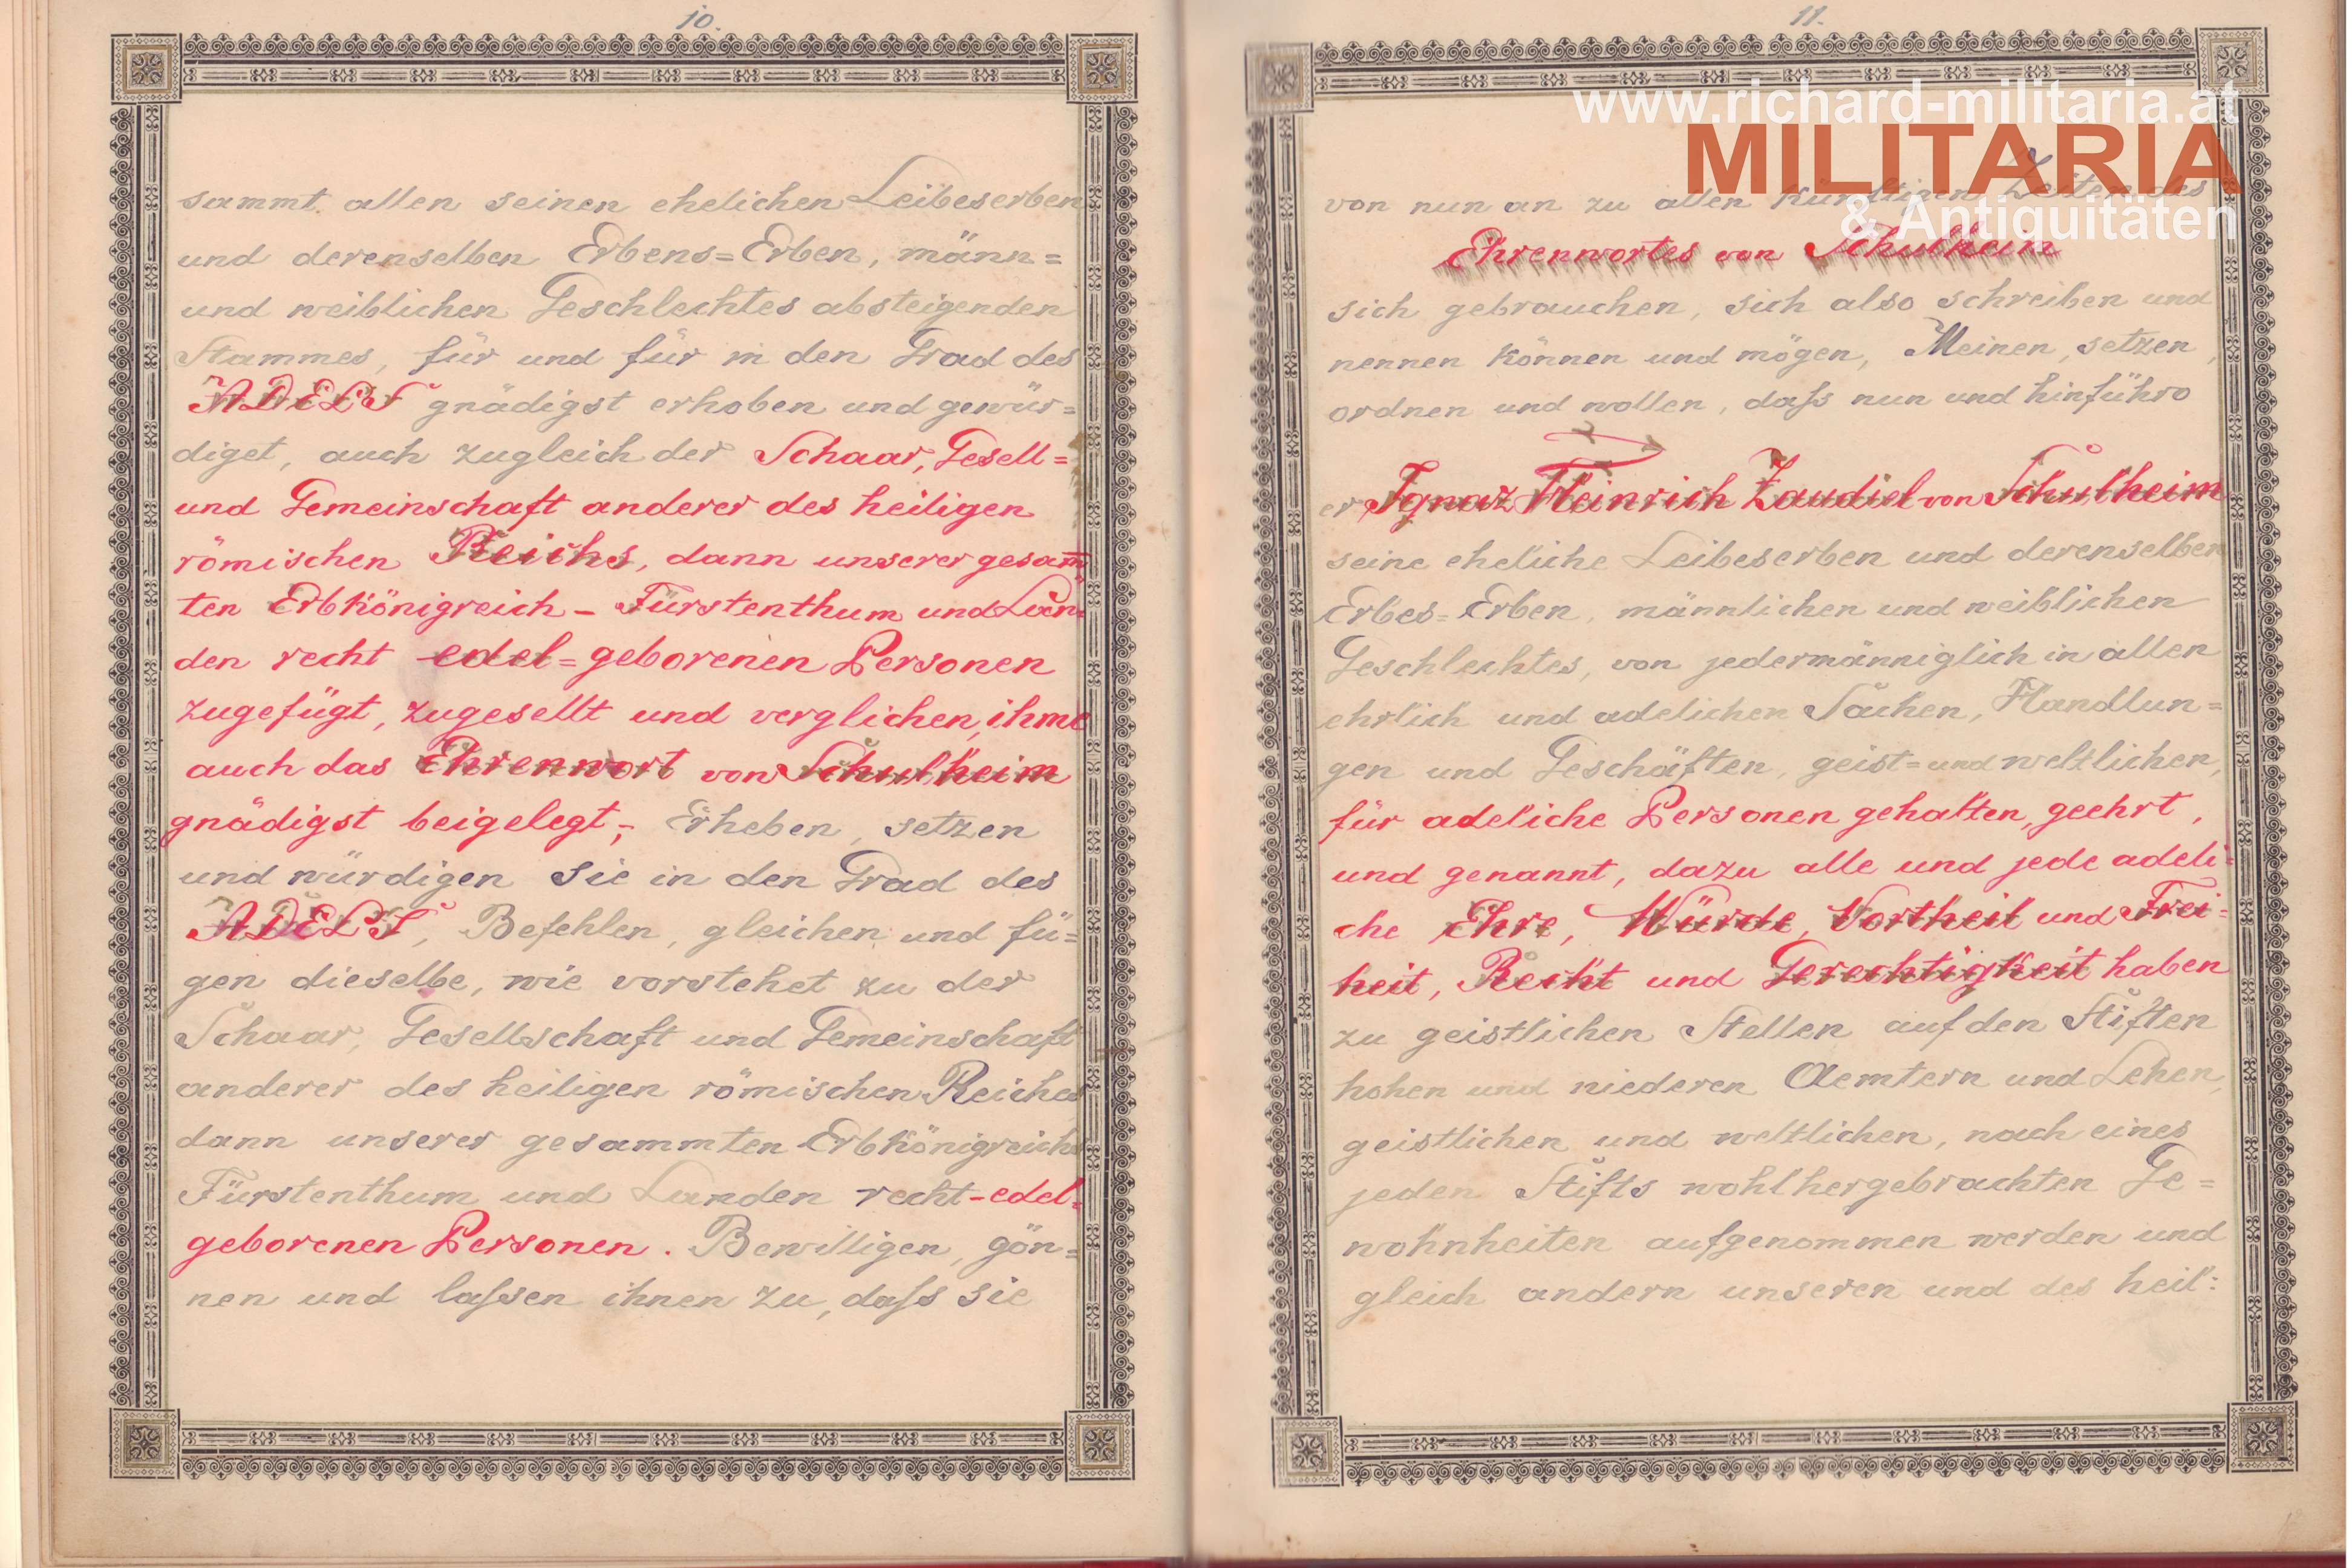 10.
sammt allen seinen ehelichen Leibeserben
und derenselben Erbens=Erben, männ=
und weiblichen Geschlechtes absteigenden
Stammes, für und für in den Grad des
ADELS gnädigst erhoben und gewür=
diget, auch zugleich der Schaar, Gesell=
und Gemeinschaft anderer des heiligen
römischen Reichs, dann unserer gesam̅
ten Erbkönigreich - Fürstenthum und Län=
den recht edel=geborenen Personen
zugefügt, zugesellt und verglichen, ihme
auch das Ehrenwort von Schulheim
gnädigst beigelegt,- Erheben, setzen
und würdigen sie in den Grad des
ADELS, Befehlen, gleichen und fü=
gen dieselbe, wie vorstehet zu der
Schaar, Gesellschaft und Gemeinschaft
anderer des heiligen römischen Reiches
dann unserer gesammten Erbkönigreichs
Fürstenthum und Landen recht-edel=
geborenen Personen. Bewilligen, gön=
nen und laſsen ihnen zu, daſs sie
11.
von nun an zu allen künftigen Zeiten des
Ehrenwortes von Schulheim
sich gebrauchen, sich also schreiben und
nennen können und mögen, Meinen, setzen,
ordnen und wollen, daſs nun und hinführo
er Ignaz Heinrich Zaudiel von Schulheim
seine eheliche Leibeserben und derenselben
Erbes=Erben, männlichen und weiblichen
Geschlechtes, von jedermänniglich in allen
ehrlich und adelichen Sachen, Handlun=
gen und Geschäften, geist=und weltlichen,
für adeliche Personen gehalten, geehrt,
und genannt, dazu alle und jede adeli=
che Ehre, Würde, Vortheil und Frei=
heit, Recht und Gerechtigkeit haben
zu geistlichen Stellen auf den Stiften
hohen und niederen Aemtern und Lehen,
geistlichen und weltlichen, nach eines
jeden Stifts wohlhergebrachten Ge=
wohnheiten aufgenommen werden und
gleich andern unseren und des heil:
www.richard-militaria.at
MILITARIA
& Antiquitäten